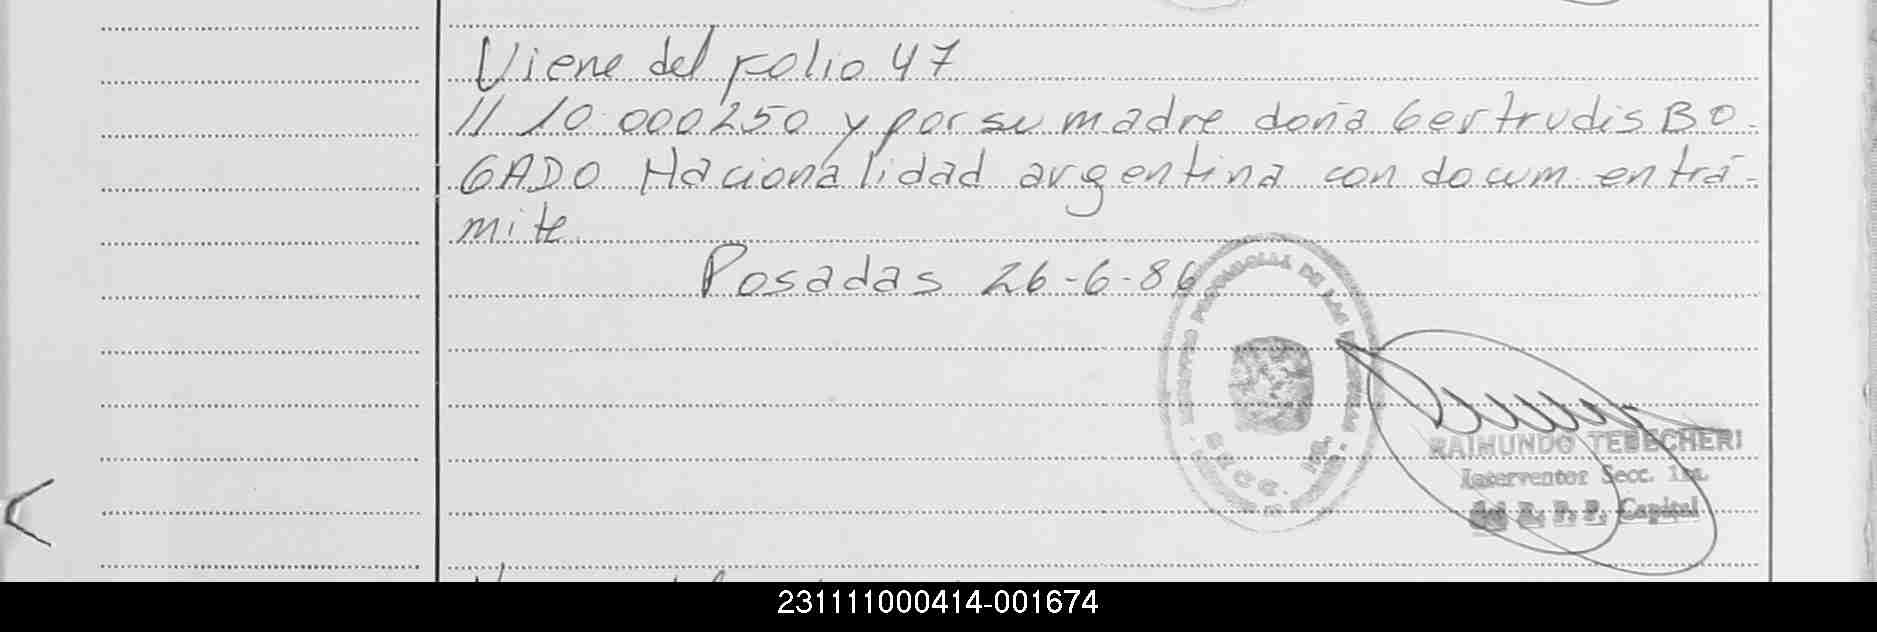 Viene del folio 47
// 10.000250 y por su madre doña Gertrudis BO-
GADO Nacionalidad argentina con docum en trá-
mite.
Posadas 26-6-86
REGISTRO PROVINCIAL DE LAS PERSONAS
SECC. 1ra.
RAIMUNDO TEBECHERI
Interventor Secc. 1ra.
del R. P. P. Capital
231111000414-001674